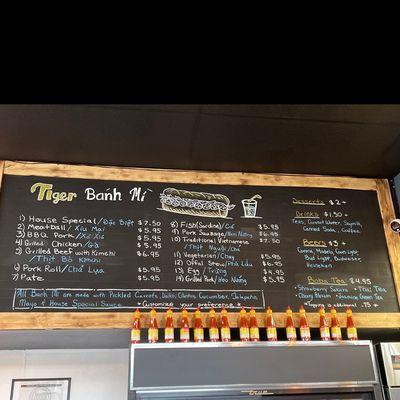 Tiger Banh Mi
1) House Special/Đặc Biệt $7.50
2) Meatball/Xíu Mại $5.95
3) BBQ Pork/Xá Xíu $5.95
4) Grilled Chicken/Gà $5.95
5) Grilled Beef with Kimchi $6.95
/Thịt Bò Kimchi
6) Pork Roll/Chả Lụa $5.95
7) Pate $5.95
8) Fish(Sardine)/Cá $5.95
9) Pork Sausage/Nem Nướng $6.95
10) Traditional Vietnamese $7.50
/Thịt Nguội/Chả
11) Vegetarian/Chay $5.95
12) Offal Stew/Phá Lấu $6.95
13) Egg/Trứng $4.95
14) Grilled Pork/Heo Nướng $5.95
All Banh Mi are made with Pickled Carrots, Daikon, Cilantro, Cucumber, Jalapeño
Mayo & House Special Sauce * Customize your preference *
Desserts $2+
Drinks $1.50+
Teas, Coconut Water, Soymilk,
Canned Soda, Coffee
Beers $3+
Corona, Modelo, Coors Light
Bud Light, Budweiser
Heineken
Boba Tea $4.95
Strawberry • Thai Tea
true